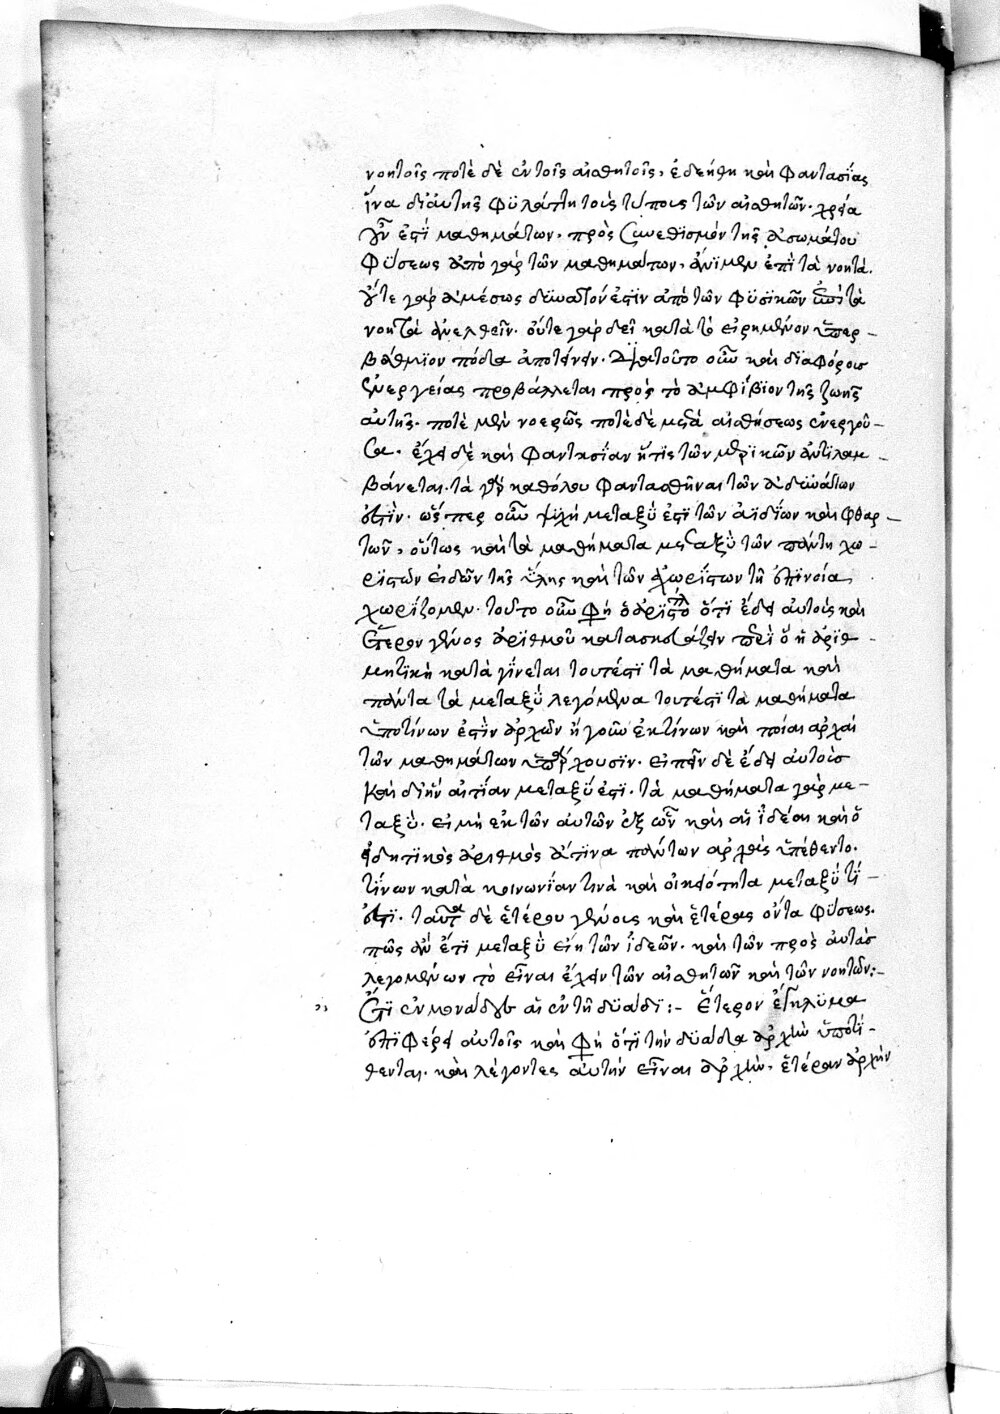 νοητοῖς ποτὲ δὲ ἐν τοῖς αἰσθητοῖς, ἐδεήθη καὶ φαντασίας
ἵνα δι' αὐτῆς φυλάττῃ τοὺς τύπους τῶν αἰσθητῶν. χρεία
γοῦν ἐστὶ μαθημάτων, πρὸς συνεθισμόν τῆς ἀσωμάτου
φύσεως ἀπὸ γὰρ τῶν μαθημάτων, ἄνιμεν ἐπὶ τὰ νοητά.
οὔτε γὰρ ἀμέσως δυνατόν ἐστιν ἀπὸ τῶν φυσικῶν ἐπὶ τὰ
νοητὰ ἀνελθεῖν. οὔτε γὰρ δεῖ κατὰ τὸ εἰρημένον ὑπερ-
βάθμιον πόδα ἀποτείνειν. διὰ τοῦτο οὖν καὶ διαφόροις
ἐνεργείας προβάλλεται πρὸς τὸ ἀμφίβιον τῆς ζωῆς
αὐτῆς. ποτὲ μὲν νοερῶς ποτὲ δὲ μετὰ αἰσθήσεως ἐνεργοῦ-
σα. ἔχει δὲ καὶ φαντασίαν ἥτις τῶν μερικῶν ἀντιλαμ-
βάνεται. τὰ γὰρ καθόλου φαντασθῆναι τῶν ἀδυνάτων
ἐστίν. ὥσπερ οὖν ψυχὴ μεταξύ ἐστι τῶν ἀϊδίων καὶ φθαρ-
τῶν, οὕτως καὶ τὰ μαθήματα μεταξὺ τῶν πάντη χω-
ριστῶν εἰδῶν τῆς ὕλης καὶ τῶν ἀχωρίστων τῇ ἐπινοίᾳ
χωρίζομεν. τοῦτο οὖν φη ὁ ἀριστοτλ ὅτι ἔδει αὐτοὺς καὶ
ἕτερον γένος ἀριθμοῦ κατασκευάζειν περὶ ὃ ἡ ἀριθ-
μητικὴ κατὰ γίνεται τουτέστι τὰ μαθήματα καὶ
πάντα τὰ μεταξὺ λεγόμενα τουτέστι τὰ μαθήματα
ὑπὸ τίνων ἐστὶν ἀρχῶν ἤγουν ἐκ τίνων καὶ ποῖαι ἀρχαὶ
τῶν μαθημάτων ὑπάρχουσιν. εἰπεῖν δὲ ἔδει αὐτοὺς
καὶ δι' ἣν αἰτίαν μεταξύ ἐστι. τὰ μαθήματα γὰρ με-
ταξὺ. εἰ μὴ ἐκ τῶν αὐτῶν ἐξ ὧν καὶ αἱ ἰδέαι καὶ ὁ
εἰδητικὸς ἀριθμὸς ἅτινα πάντων ἀρχὰς ὑπέθεντο.
τίνων κατὰ κοινωνίαν τινὰ καὶ οἰκειότητα μεταξύ τί-
ἐστι. ταῦτα δὲ ἑτέρου γένους καὶ ἑτέρας ὄντα φύσεως.
πῶς ἂν ἔτι μεταξὺ εἴη τῶν ἰδεῶν. καὶ τῶν πρὸς αὐτὰς
λεγομένων τὸ εἶναι ἔχειν τῶν αἰσθητῶν καὶ τῶν νοητῶν:-
,, Ἔτι ἐν μονάδες αἱ ἐν τῇ δυάδι:- ἕτερον ἐγκλημα
ἐπιφέρει αὐτοῖς καὶ φη ὅτι τὴν δυάδα ἀρχὴν ὑποτί-
θενται. καὶ λέγοντες αὐτὴν εἶναι ἀρχὴν, ἑτέραν ἀρχὴν